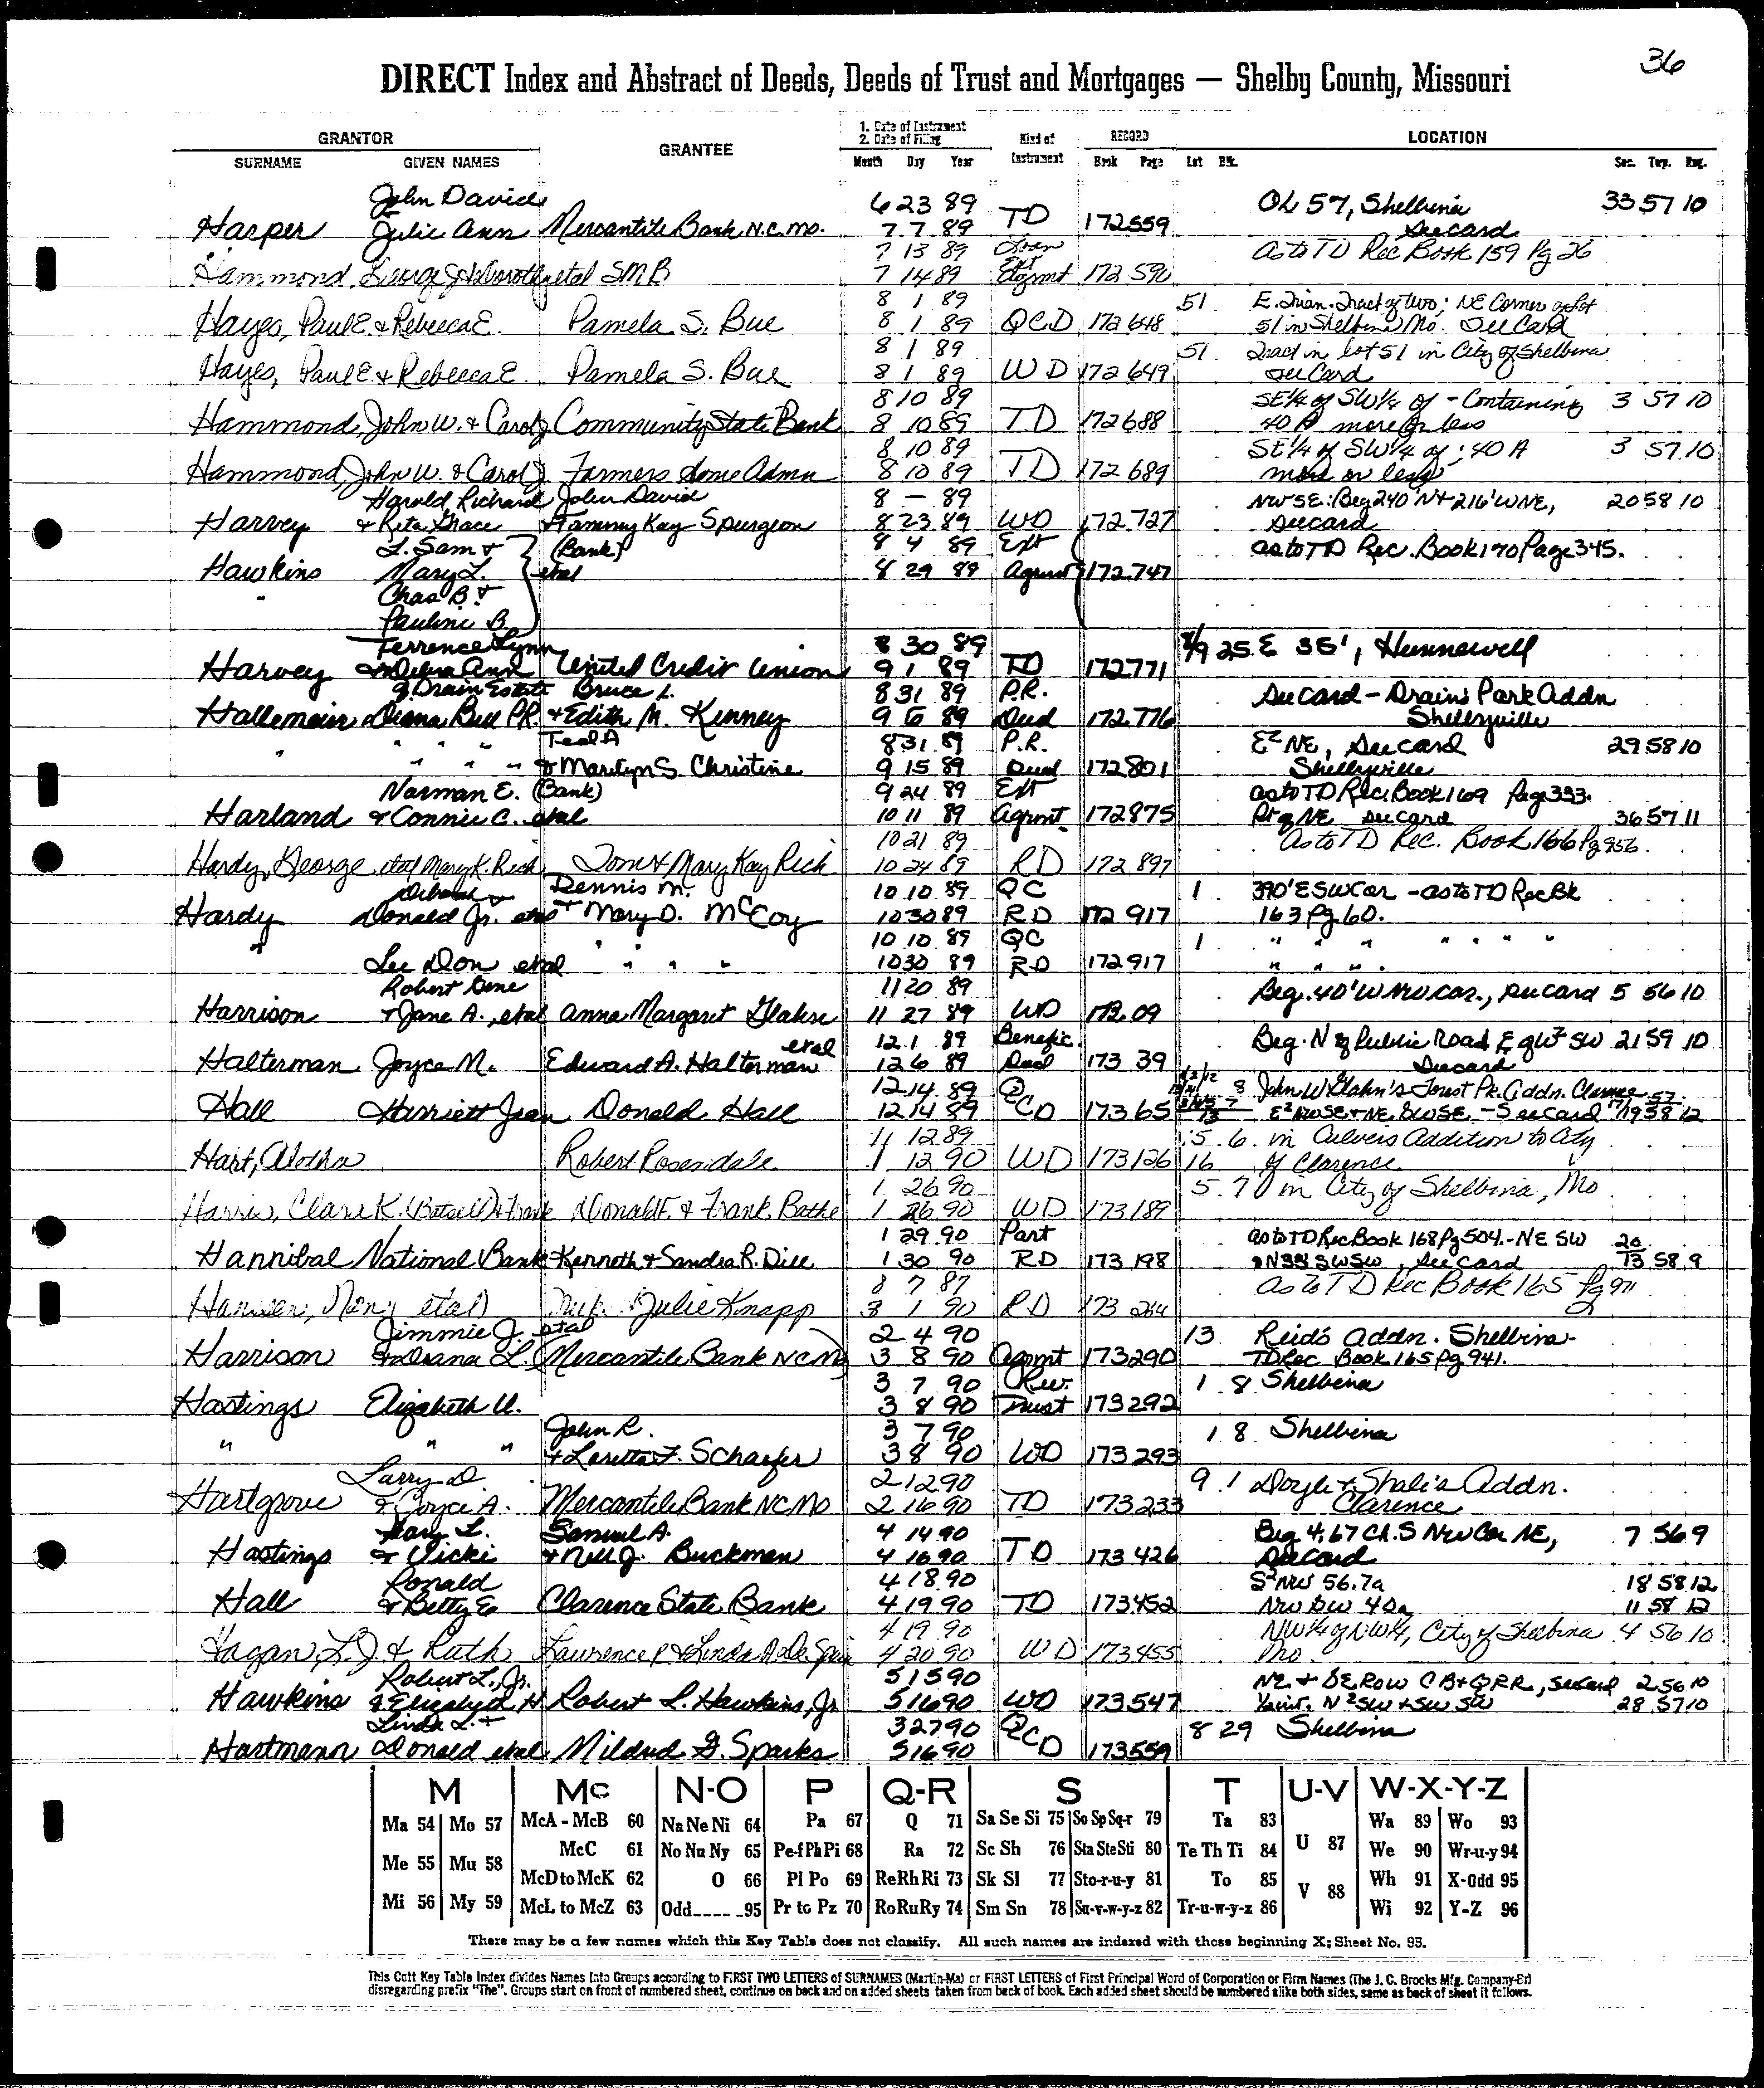 36
DIRECT Index and Abstract of Deeds, Deeds of Trust and Mortgages — Shelby County, Missouri
GRANTOR GRANTEE 1. Date of Instrument 2. Date of Filing Kind of Instrument RECORD LOCATION
SURNAME GIVEN NAMES Month Day Year Book Page Lot Blk. Sec. Twp. Rng.
John David 6 23 89 OL 57, Shelbina 33 57 10
Harper Julie Ann Mercantile Bank N.C. Mo. 7 7 89 TD 172 559 See card
7 13 89 Loan Ext As to TD Rec Book 159 Pg 26
Hammond, George J & Dorothy etal SMB 7 14 89 Agmt 172 590
8 1 89 51 E. Trian. Tract of two; NE Corner of Lot
Hayes, Paul E. & Rebecca E. Pamela S. Bue 8 1 89 QCD 172 648 51 in Shelbina Mo. See Card
8 1 89 51 Tract in lot 51 in City of Shelbina
Hayes, Paul E & Rebecca E. Pamela S. Bue 8 1 89 WD 172 649 See Card
8 10 89 SE¼ of SW¼ of - Containing 3 57 10
Hammond, John W. & Carol J. Community State Bank 8 10 89 TD 172 688 40 A more or less
8 10 89 SE¼ of SW¼ of ; 40 A 3 57 10
Hammond, John W. & Carol J. Farmers Home Admn 8 10 89 TD 172 689 more or less
Harold Richard John David 8 — 89 NWSE: Beg 240' N + 216' W NE, 20 58 10
Harvey & Rita Grace & Tammy Kay Spurgeon 8 23 89 WD 172 727 See card
L. Sam & (Bank) 8 4 89 Ext as to TD Rec. Book 170 Page 345.
Hawkins Mary L. etal 8 29 89 Agmnt 172 747
" Chas B. &
Pauline B.
Terrence Lynn 8 30 89 8/9 25 E 35', Hunnewell
Harvey & Debra Ann United Credit Union 9 1 89 TD 172 771
of Drain Estate Bruce L. 8 31 89 P.R. See card - Drains Park Addn
Hallemeier Diana Bell P.R. & Edith M. Kenney 9 6 89 Deed 172 776 Shelbyville
Ted A 8 31 89 P.R. E² NE, See card 29 58 10
" " " " & Marilyn S. Christine 9 15 89 Deed 172 801 Shelbyville
Norman E. (Bank) 9 24 89 Ext as to TD Rec. Book 169 Page 333.
Harland & Connie C. etal 10 11 89 Agrmt 172 875 Pt of NE See card 36 57 11
10 21 89 As to TD Rec. Book 166 Pg 956
Hardy, George etal Mary K. Rich Tom & Mary Kay Rich 10 24 89 RD 172 897
Deborah & Dennis M. 10 10 89 QC 1 390' E SW Cor - as to TD Rec Bk
Hardy Donald Jr. etal & Mary D. McCoy 10 30 89 RD 172 917 163 Pg 60.
" 10 10 89 QC 1 " " " " " " "
Lee Don etal " " " 10 30 89 RD 172 917 " " "
Robert Gene 11 20 89 Beg. 40' W NW cor., See card 5 56 10
Harrison & Jane A., etal Anna Margaret Glahse 11 27 89 WD 173 09
etal 12 1 89 Benefic. Beg. N of Public Road E of W² SW 21 59 10
Halterman Joyce M. Edward A. Halterman 12 6 89 Deed 173 39 See card
12 14 89 Q 8 John W Glahn's Forest Pk. Addn. Clarence
Hall Harriett Jean Donald Hall 12 14 89 CD 173 65 E² NWSE + NE SWSE - See card
1 12 89 5 6 in Culvers Addition to City
Hart, Alotha Robert Rosendale 1 12 90 WD 173 126 16 of Clarence
1 26 90 5 70 in City of Shelbina, Mo
Harris, Clare K. Donald F. & Frank Bathe 1 26 90 WD 173 189
1 29 90 Part as to TD Rec Book 168 Pg 504. - NE SW 20
Hannibal National Bank Kenneth & Sandra R. Dill 1 30 90 RD 173 198 SWSW, See Card 13 58 9
8 7 87 As to TD Rec Book 165 Pg 911
etal Julie Knapp 3 1 90 RD 173 264
Jimmie J. etal 2 4 90 13 Reid's Addn. Shelbina -
Harrison & Diana L. (Mercantile Bank NC Mo) 3 8 90 Agrmt 173 290 TD Rec Book 165 Pg 941.
3 7 90 Rev. 1 8 Shelbina
Hastings Elizabeth U. 3 8 90 Trust 173 292
John R. 3 7 90 1 8 Shelbina
" " " & Loretta F. Schaefer 3 8 90 WD 173 293
Larry D 2 12 90 9 1 Doyle & Shale's Addn.
Hartgrove & Joyce A. Mercantile Bank NC Mo 2 16 90 TD 173 233 Clarence
Gary L. Samuel A. 4 14 90 Beg 4.67 Ch. S NW Cor NE, 7 56 9
Hastings & Vicki & Nell J. Buckman 4 16 90 TD 173 426 See Card
Ronald 4 18 90 S² NW 56.7a 18 58 12
Hall & Betty E Clarence State Bank 4 19 90 TD 173 452 NW SW 40a 11 58 12
4 19 90 NW¼ of NW¼, City of Shelbina 4 56 10
Hagan, L. J. & Ruth Lawrence P. & Linda 4 20 90 WD 173 455 Mo.
Robert L., Jr. 5 15 90 NE + SE ROW CB+QRR, See card 2 56 10
Hawkins & Elizabeth H Robert L. Hawkins, Jr 5 16 90 WD 173 547 N² SW + SW SW 28 57 10
Linda L. & 3 27 90 Q 8 29 Shelbina
Hartmann Donald etal Mildred G. Sparks 5 16 90 CD 173 559
M Mc N-O P Q-R S T U-V W-X-Y-Z
Ma 54 Mo 57 McA - McB 60 Na Ne Ni 64 Pa 67 Q 71 Sa Se Si 75 So Sp Sq-r 79 Ta 83 U 87 Wa 89 Wo 93
McC 61 No Nu Ny 65 Pe-f Ph Pi 68 Ra 72 Sc Sh 76 Sta Ste Sti 80 Te Th Ti 84 We 90 Wr-u-y 94
Me 55 Mu 58 McD to McK 62 O 66 Pl Po 69 Re Rh Ri 73 Sk Sl 77 Sto-r-u-y 81 To 85 V 88 Wh 91 X-Odd 95
Mi 56 My 59 McL to McZ 63 Odd ---- 95 Pr to Pz 70 Ro Ru Ry 74 Sm Sn 78 Su-v-w-y-z 82 Tr-u-w-y-z 86 Wi 92 Y-Z 96
There may be a few names which this Key Table does not classify. All such names are indexed with those beginning X; Sheet No. 95.
This Cott Key Table Index divides Names Into Groups according to FIRST TWO LETTERS of SURNAMES (Martin-Ma) or FIRST LETTERS of First Principal Word of Corporation or Firm Names (The J. C. Brooks Mfg. Company-Br)
disregarding prefix "The". Groups start on front of numbered sheet, continue on back and on added sheets taken from back of book. Each added sheet should be numbered alike both sides, same as back of sheet it follows.